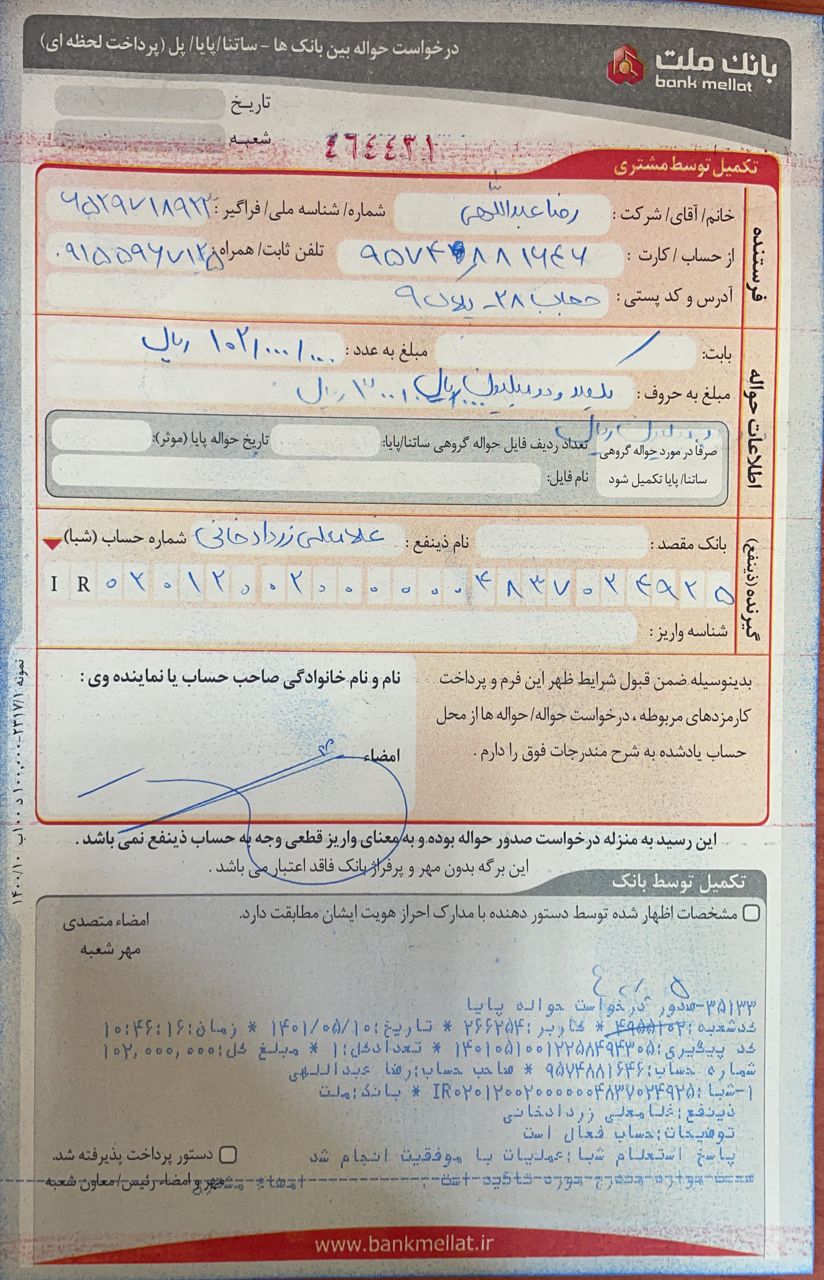 درخواست حواله بین بانک ها - ساتنا/پایا/ پل (پرداخت لحظه ای)
بانک ملت
bank mellat
تاریخ
شعبه
٤٦٤٤٣١
تکمیل توسط مشتری
فرستنده
خانم/ آقای/ شرکت : رضا عبداللهی شماره/ شناسه ملی/ فراگیر :
از حساب / کارت : ۹۵۷۴۸۸۱۶۴۶ تلفن ثابت/ همراه: ۰۹۱۵۵۹۶۷۱۲۵
آدرس و کد پستی : حجاب ۲۸ - پلاک ۹
اطلاعات حواله
بابت: مبلغ به عدد : ۱۰۲/۰۰۰/۰۰۰ ریال
مبلغ به حروف : یکصد و دو میلیون ریال
صرفا در مورد حواله گروهی ساتنا/ پایا تکمیل شود
تعداد ردیف فایل حواله گروهی ساتنا/پایا: تاریخ حواله پایا (موثر):
نام فایل:
گیرنده (ذینفع)
بانک مقصد : نام ذینفع : غلامعلی زردادخانی شماره حساب (شبا)
IR ۰۲۰۱۲۰۰۲۰۰۰۰۰۰۴۸۳۷۰۲۴۹۲۵
شناسه واریز :
بدینوسیله ضمن قبول شرایط ظهر این فرم و پرداخت
کارمزدهای مربوطه ، درخواست حواله/ حواله ها از محل
حساب یادشده به شرح مندرجات فوق را دارم .
نام و نام خانوادگی صاحب حساب یا نماینده وی :
امضاء
این رسید به منزله درخواست صدور حواله بوده و به معنای واریز قطعی وجه به حساب ذینفع نمی باشد .
این برگه بدون مهر و پرفراژ بانک فاقد اعتبار می باشد .
تکمیل توسط بانک
مشخصات اظهار شده توسط دستور دهنده با مدارک احراز هویت ایشان مطابقت دارد.
امضاء متصدی
مهر شعبه
۳۵۱۳۳-صدور درخواست حواله پایا
کدشعبه:۴۹۵۵۱۰۲ * کاربر:۲۶۶۲۵۴ * تاریخ:۱۴۰۱/۰۵/۱۰ * زمان:۱۰:۴۶:۱۶
کد پیگیری:۱۴۰۱۰۵۱۰۰۱۲۲۵۸۴۹۴۳۰۵ * تعدادکل:۱ * مبلغ کل:۱۰۲,۰۰۰,۰۰۰
شماره حساب:۹۵۷۴۸۸۱۶۴۶ * صاحب حساب:رضا عبداللهی
۱-شبا:IR۰۲۰۱۲۰۰۲۰۰۰۰۰۰۴۸۳۷۰۲۴۹۲۵ * بانک:ملت
ذینفع:غلامعلی زردادخانی
توضیحات:حساب فعال است
پاسخ استعلام شبا:عملیات با موفقیت انجام شد
صحت موارد مندرج مورد تائید است . امضاء مشتری
دستور پرداخت پذیرفته شد.
مهر و امضاء رئیس/ معاون شعبه
www.bankmellat.ir